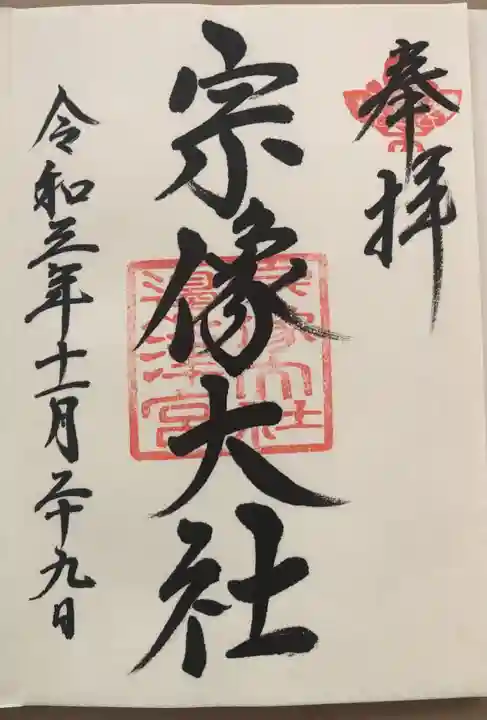 奉拝
宗像大社
宗像大社
邊津宮
令和三年十一月二十九日